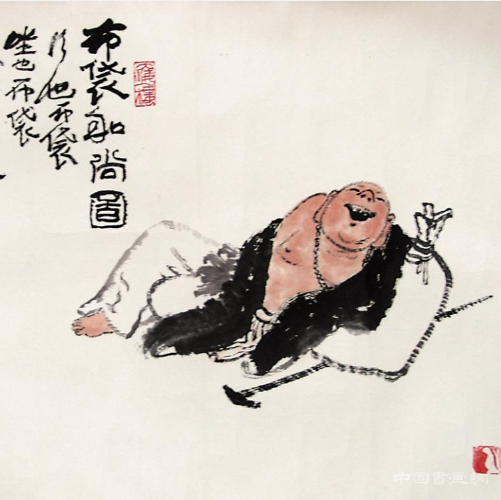 布袋和尚圖
行也布袋
坐也布袋
中国书画网